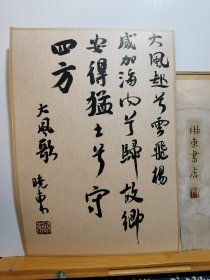 大风起兮雲飛揚
威加海内兮歸故鄉
安得猛士兮守
四方
大风歌
晓東
琳東書店